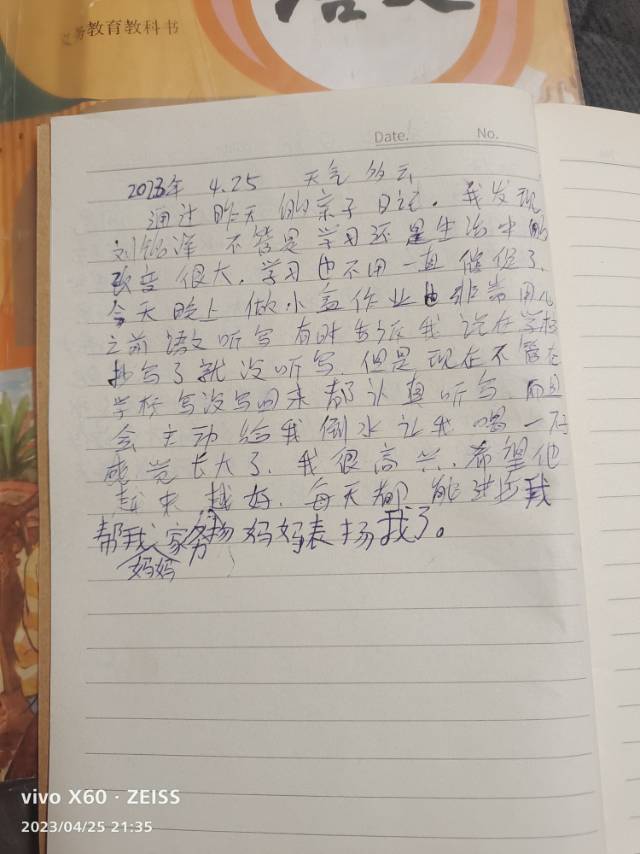 义务教育教科书
Date. No.
2023年 4.25 天气 多云
通过昨天的亲子日记。我发现
刘铭泽 不管是学习还是生活中的
改变很大.学习也不用一直催促了.
今天晚上做小益作业也非常用心
之前语文听写有时告诉我说在学校
抄写了就没听写.但是现在不管在
学校写没写回来都认真听写.而且
会主动给我倒水让我喝一下
感觉长大了.我很高兴.希望他
越来越好.每天都能进步我
帮我妈妈家务 妈妈表扬我了。
vivo X60 · ZEISS
2023/04/25 21:35